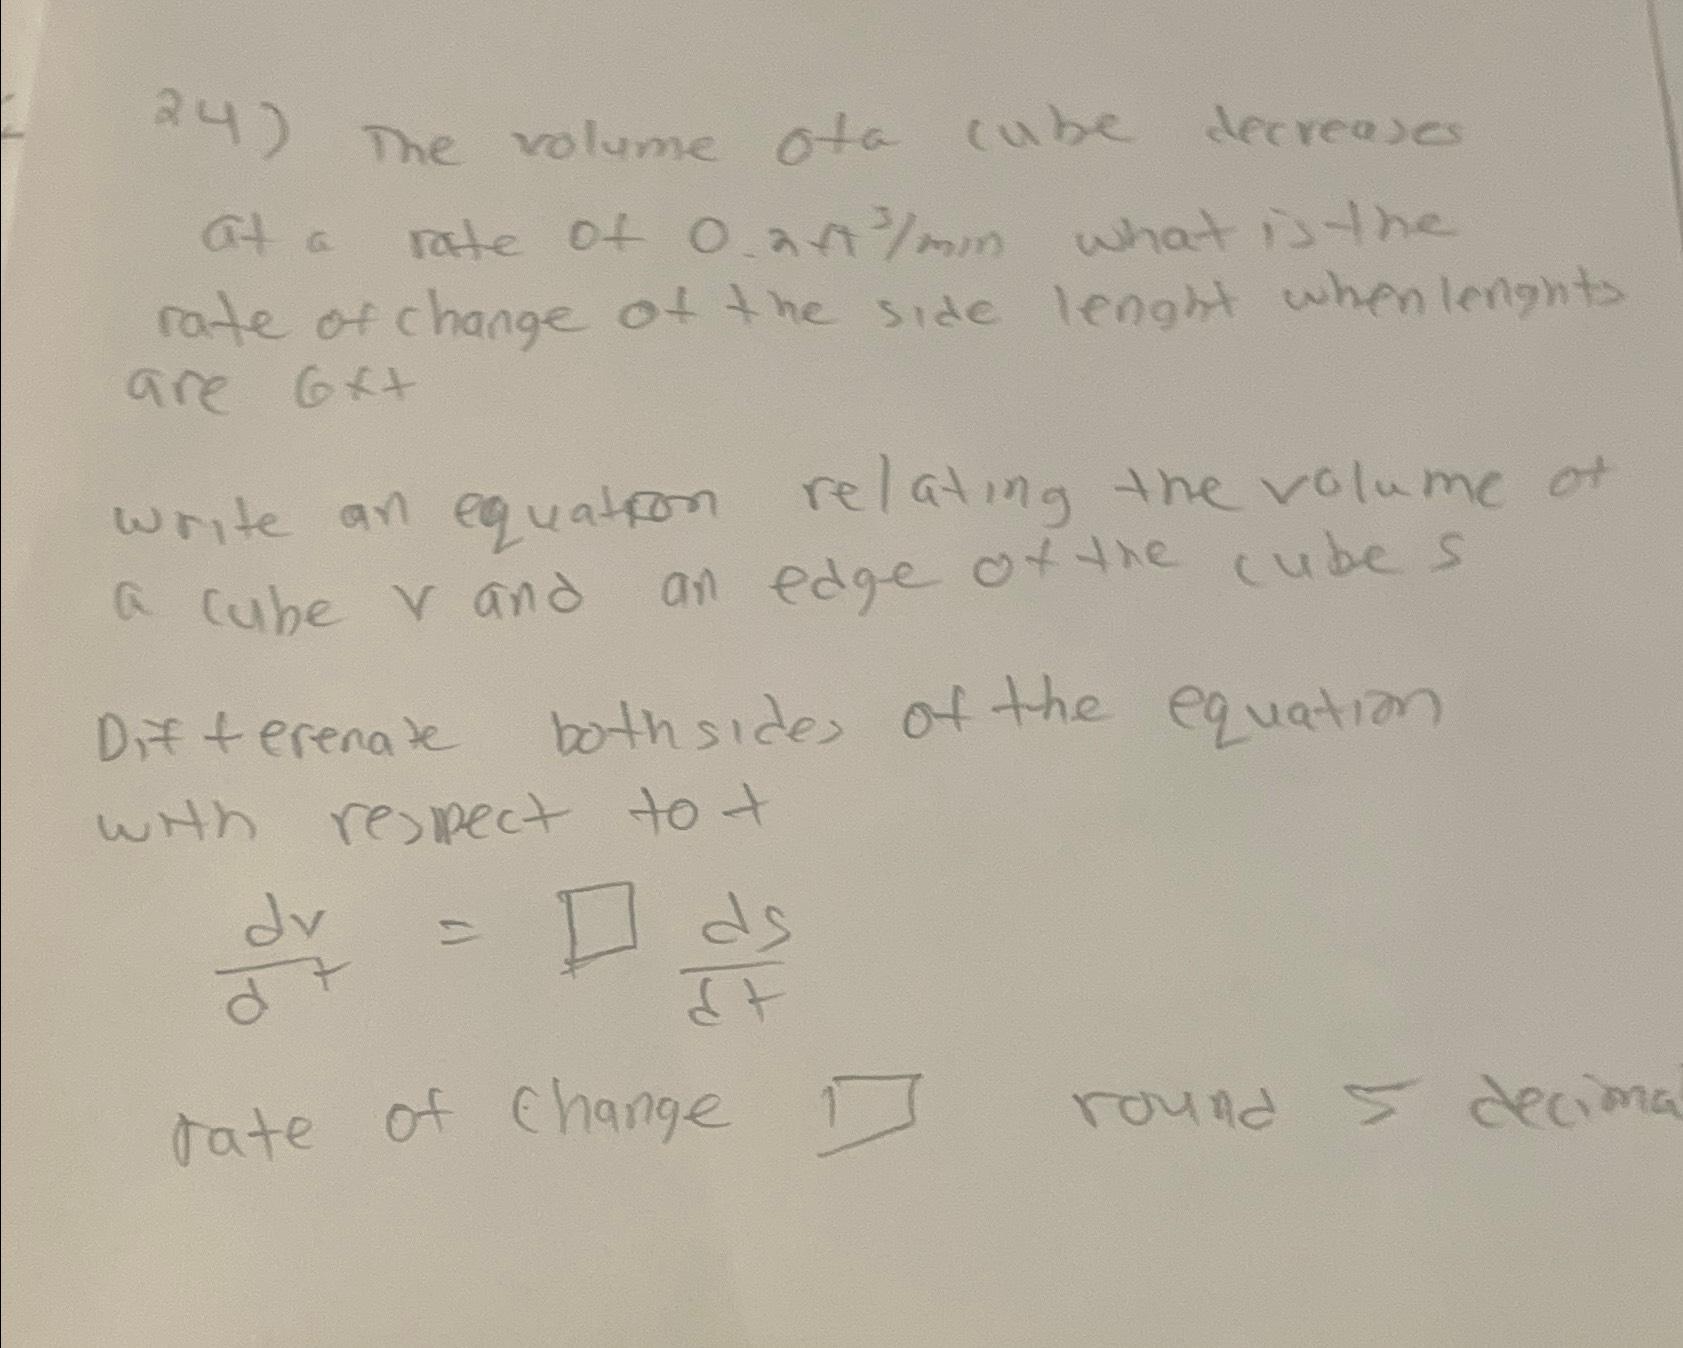 24) The volume of a cube decreases
at a rate of 0.2 ft³/min what is the
rate of change of the side lenght when lenghts
are 6 ft
write an equation relating the volume of
a cube v and an edge of the cube s
Differenate both sides of the equation
with respect to t
dv/dt = □ ds/dt
rate of change □ round 5 decima